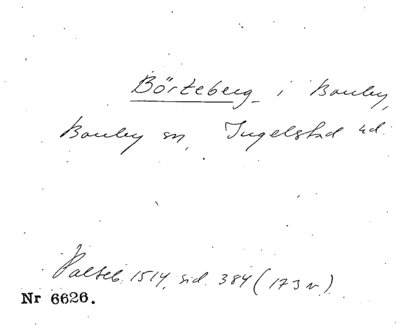 Börteberg i Bonby,
Bonby sn, Ingelstad hd.
Palteb. 1514, sid. 384 (173 v)
Nr 6626.